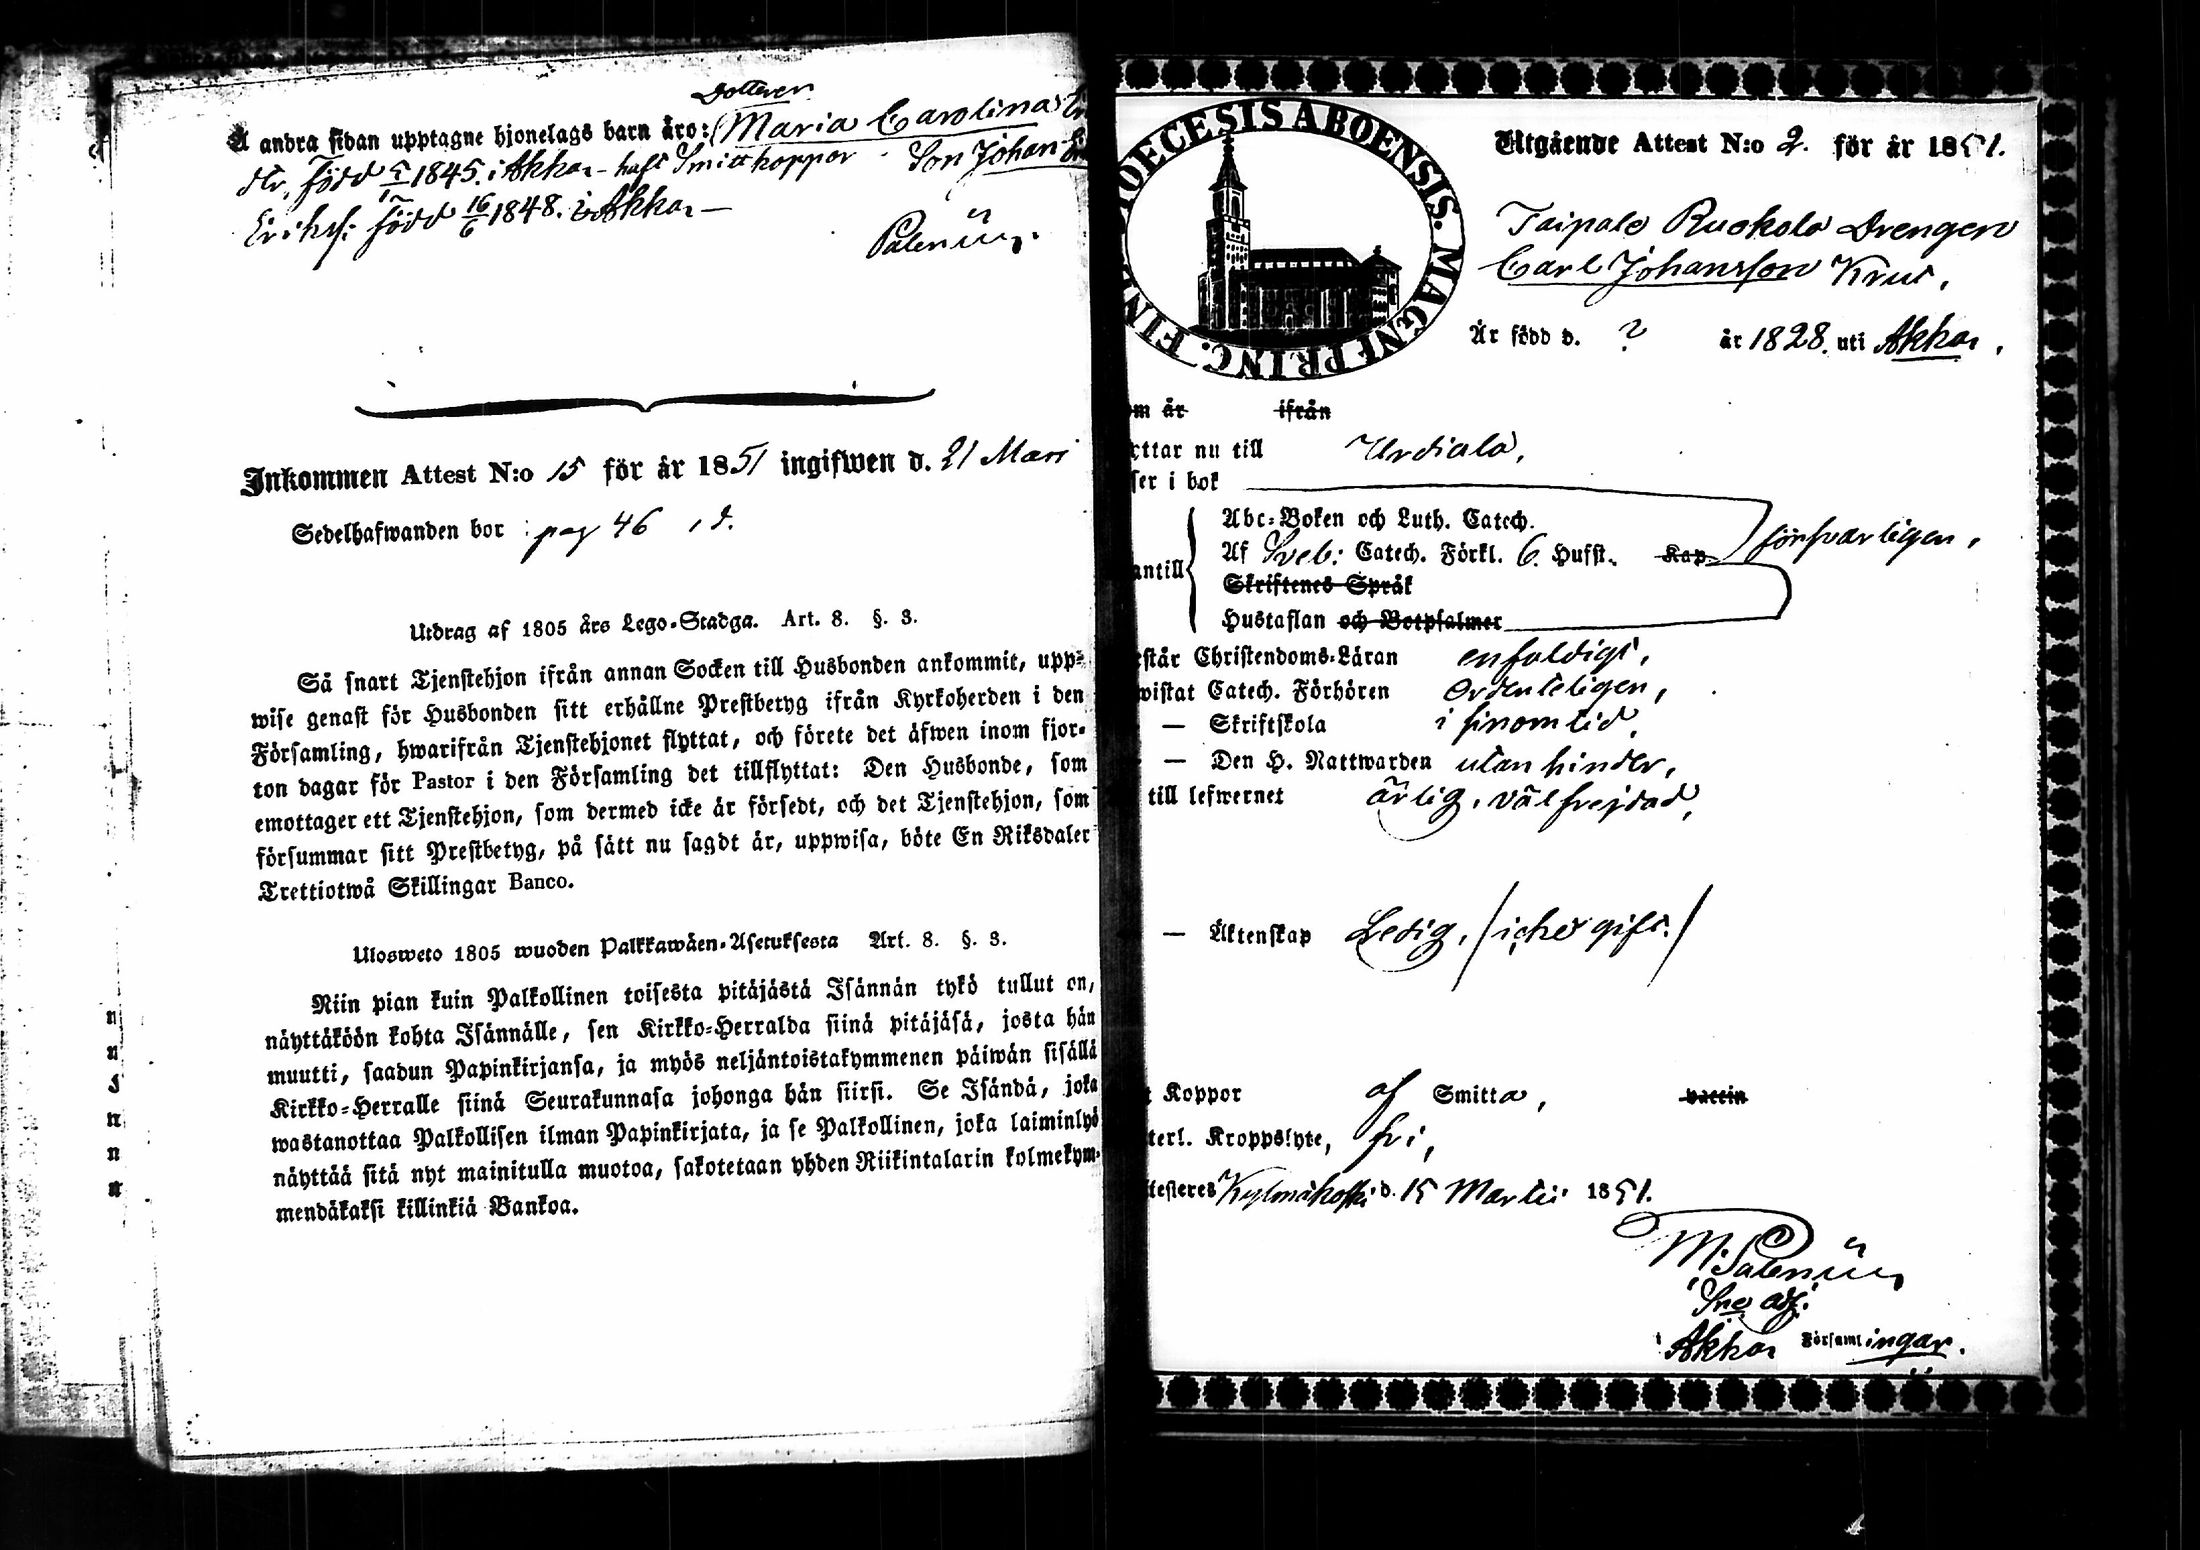 Dotteren
Å andra sidan upptagne hjonelags barn äro: Maria Carolina
dtr, född 5/12 1845. i Akkas - haft Smittkoppor. Son Johan
Eriksf: född 16/6 1848. i Akkas —
Palenius.
Inkommen Attest N:o 15 för år 1851 ingifwen d. 21 Mars
Sedelhafwanden bor : pag 46 , d.
Utdrag af 1805 års Lego-Stadga. Art. 8. §. 3.
Så snart Tjenstehjon ifrån annan Socken till Husbonden ankommit, upp-
wise genast för Husbonden sitt erhållne Prestbetyg ifrån Kyrkoherden i den
Församling, hwarifrån Tjenstehjonet flyttat, och förete det äfwen inom fjor-
ton dagar för Pastor i den Församling det tillflyttat: Den Husbonde, som
emottager ett Tjenstehjon, som dermed icke är försedt, och det Tjenstehjon, som
försummar sitt Prestbetyg, på sätt nu sagdt är, uppwisa, böte En Riksdaler
Trettiotwå Skillingar Banco.
Ulosweto 1805 wuoden Palkkawäen-Asetuksesta Art. 8. §. 3.
Niin pian kuin Palkollinen toisesta pitäjästä Isännän tykö tullut on,
näyttäköön kohta Isännälle, sen Kirkko-Herralda siinä pitäjäsä, josta hän
muutti, saadun Papinkirjansa, ja myös neljäntoistakymmenen päiwän sisällä
Kirkko-Herralle siinä Seurakunnasa johonga hän siirsi. Se Isändä, joka
wastanottaa Palkollisen ilman Papinkirjata, ja se Palkollinen, joka laiminlyö
näyttää sitä nyt mainitulla muotoa, sakotetaan yhden Riikintalarin kolmekym-
mendäkaksi killinkiä Bankoa.
DIOECESIS ABOENSIS. MAGNI PRINC. FIN
Utgående Attest N:o 2. för år 1851.
Taipale Ruokola Drengen
Carl Johansson Krus,
Är född d. ? år 1828. uti Akkas,
om är ifrån
yttar nu till Urdiala,
ser i bok
antill
Abc-Boken och Luth. Catech.
Af Sveb: Catech. Förkl. 6. Hufst. Kap
försvarligen,
Skriftenes Språk
Hustaflan och Botpsalmer
står Christendoms-Läran enfaldigt,
wistat Catech. Förhören ordenteligen,
— Skriftskola i sinom tid,
— Den H. Nattwarden utan hinder,
till lefwernet ärlig, välfrejdad,
— Äktenskap Ledig, /icke gift./
Koppor af Smitta, vaccin
terl. Kroppslyte, fri,
testeres Kylmäkoski d. 15 Martii 1851.
M. Palenius
Sne adj.
i Akkas Församlingar.